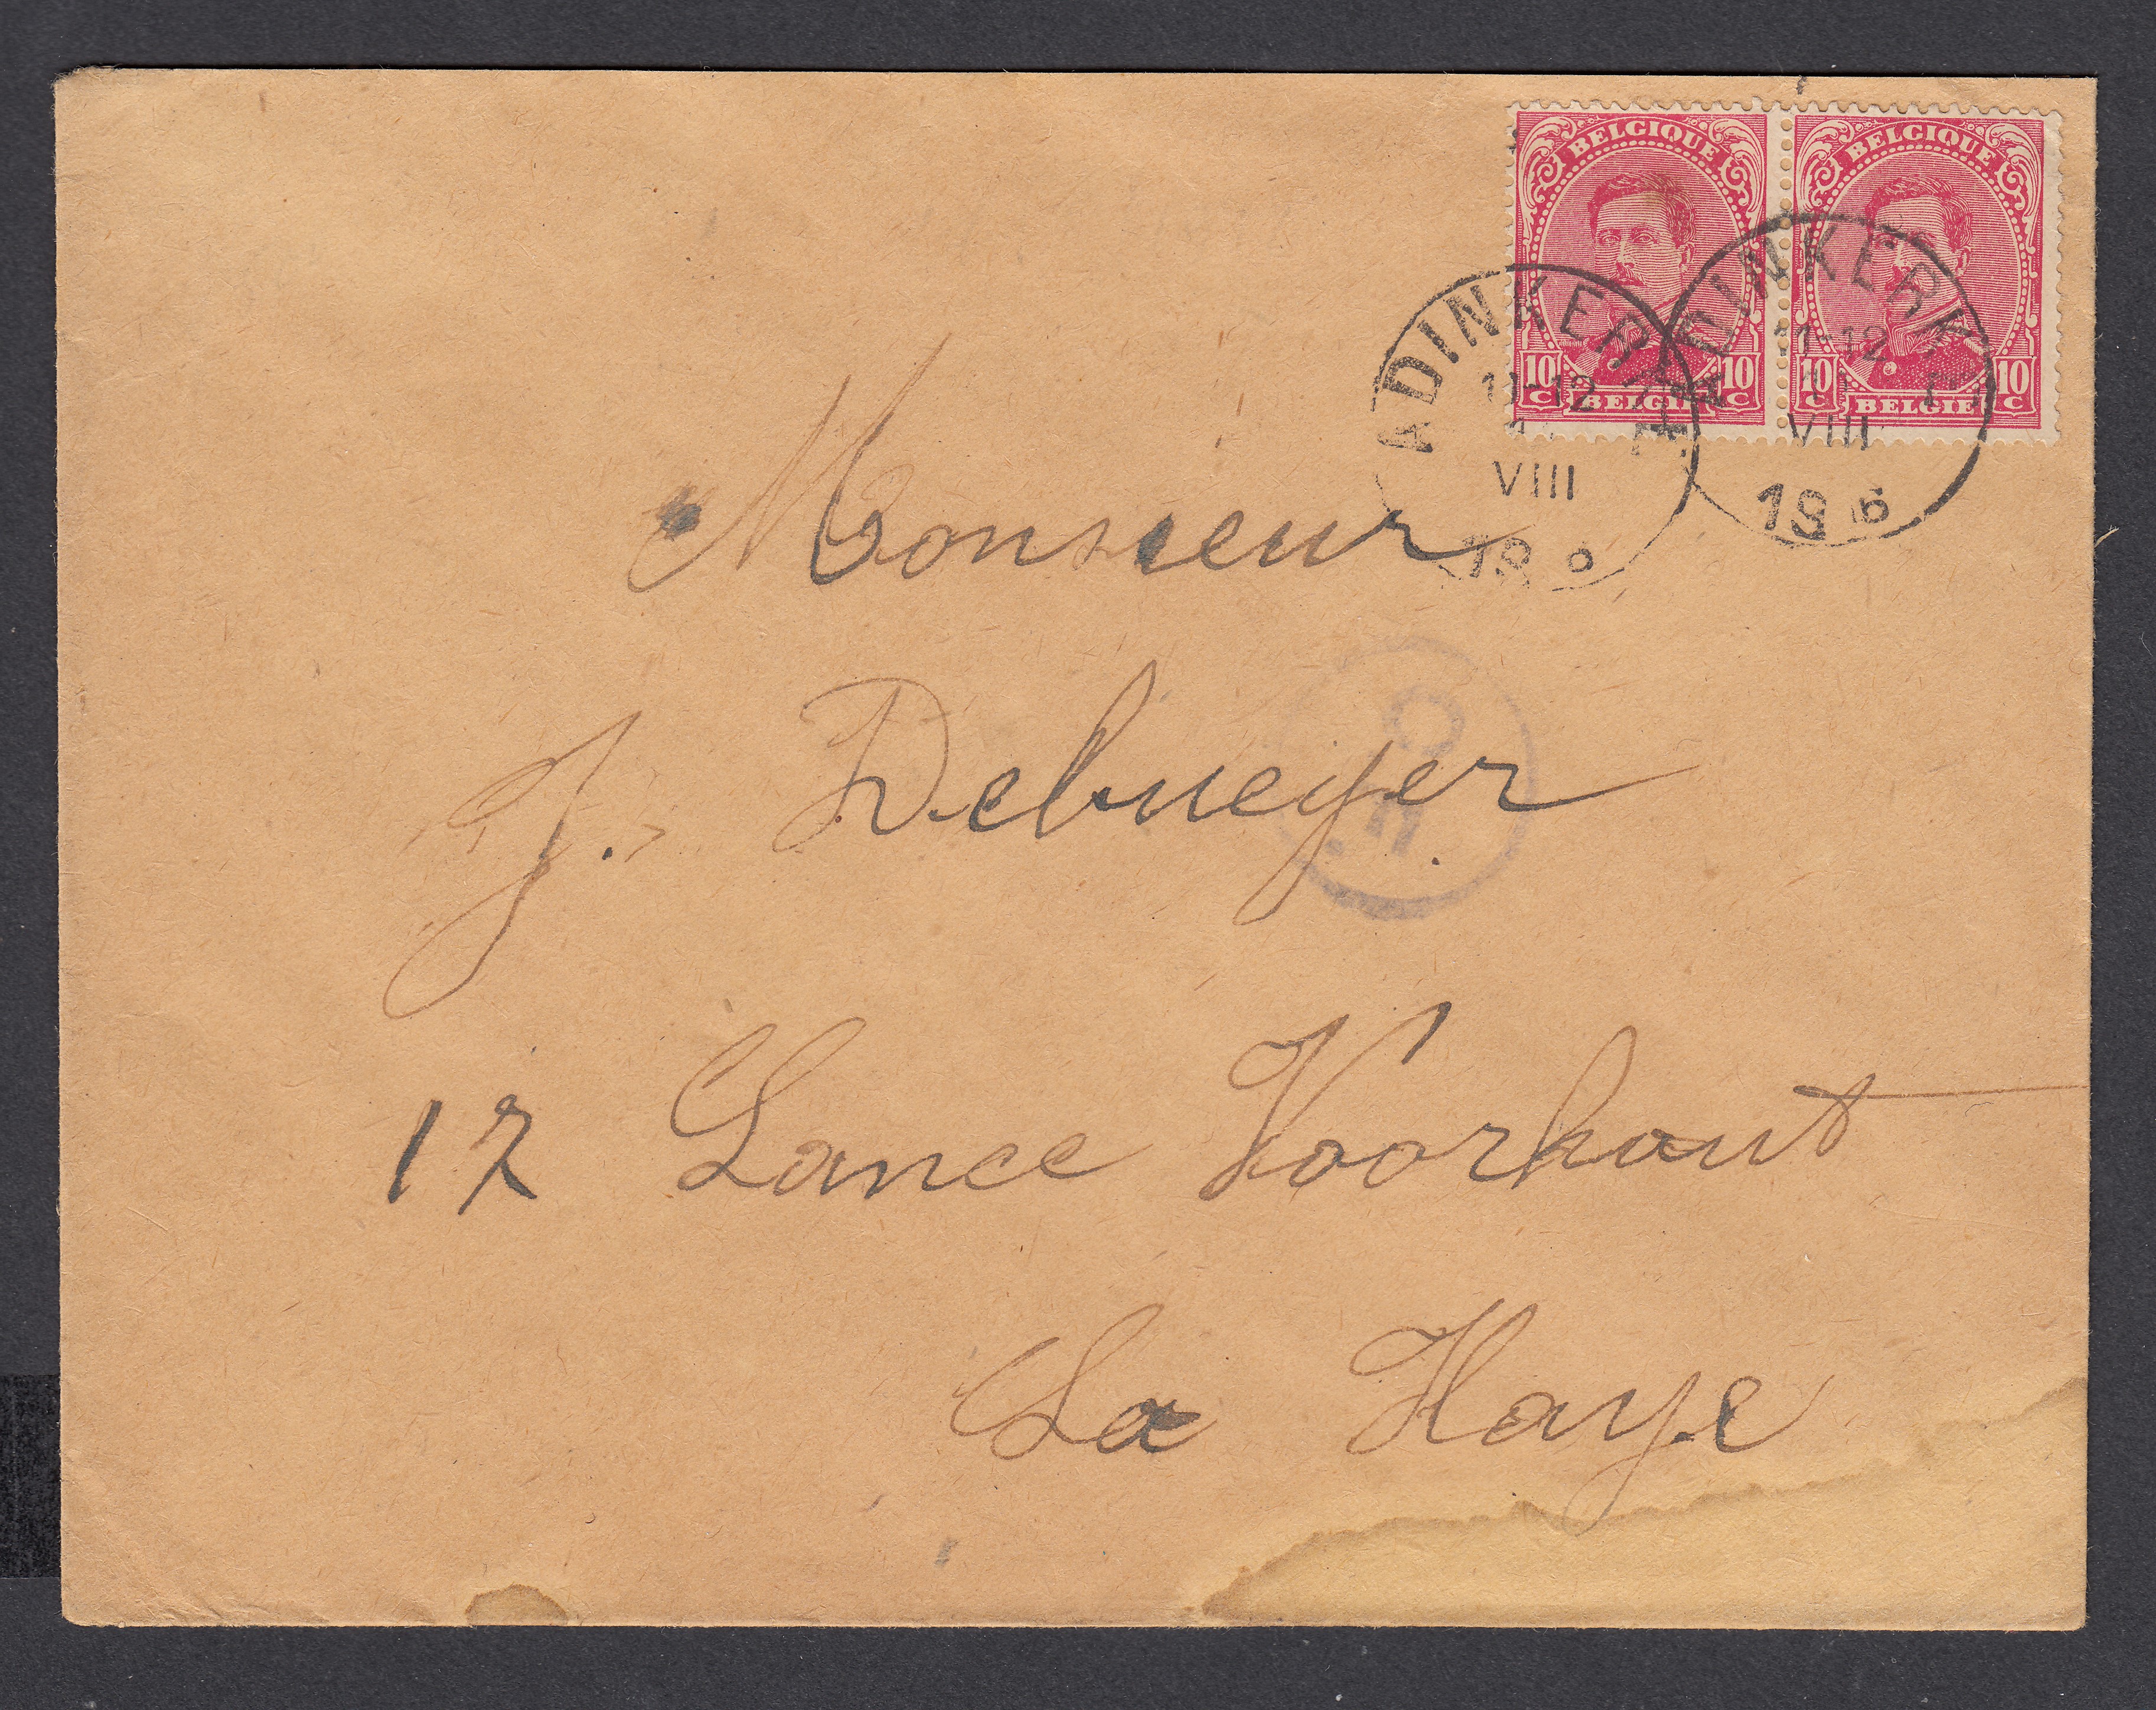 BELGIQUE BELGIQUE
10 C BELGIË 10 C 10 C BELGIË 10 C
ADINKERKE
11-12
VIII
ADINKERKE
11-12
11
VIII
19 6
Monsieur
J. Debueger
17 Lance Voorhout
La Haye